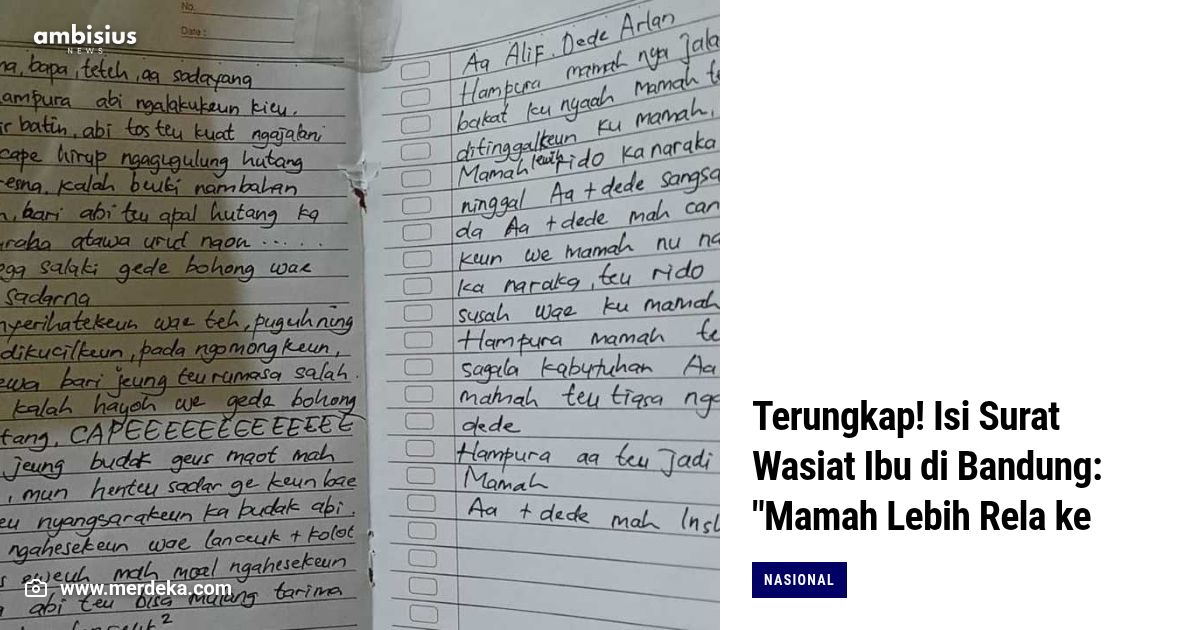 ambisius
NEWS
No.
Date :
bapa, teteh, aa sadayang
ampura abi ngalakukeun kieu.
batin, abi tos teu kuat ngajalani
cape hirup ngagugulung hutang
kalah beuki nambahan
bari abi teu apal hutang ka
atawa urut naon .....
salaki gede bohong wae
sadarna
nyerihatekeun wae teh, puguh ning
dikucilkeun, pada ngomongkeun,
bari jeung teu rumasa salah.
kalah hayoh we gede bohong
tang, CAPEEEEEEEEEEEEE
jeung budak geus maot mah
, mun henteu sadar ge keun bae
nyangsarakeun ka budak abi.
ngahesekeun wae lanceuk + kolot
euweuh mah moal ngahesekeun
abi teu bisa mulang tarima
Aa Alif. Dede Arlan
Hampura mamah nya jala
bakat ku nyaah mamah te
ditinggalkeun ku mamah.
Mamah leuih rido ka naraka
ninggal Aa + dede sangsa
da Aa + dede mah can
keun we mamah nu na
ka naraka, teu rido
susah wae ku mamah
Hampura mamah te
sagala kabutuhan Aa
mamah teu tiasa nga
dede
Hampura aa teu jadi
Mamah
Aa + dede mah Insl
www.merdeka.com
Terungkap! Isi Surat
Wasiat Ibu di Bandung:
"Mamah Lebih Rela ke
NASIONAL